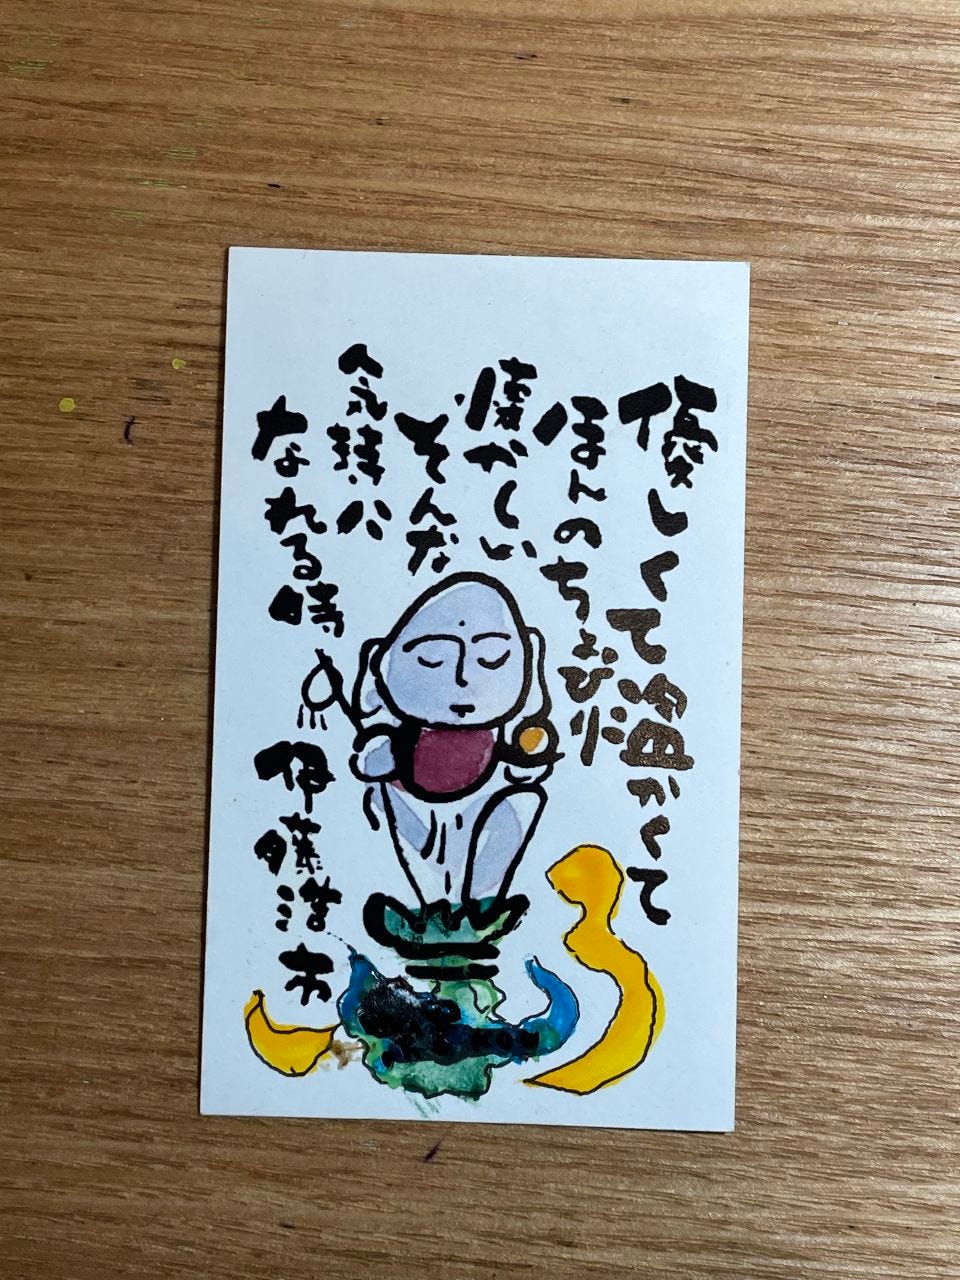 優しくて温かくて
ほんのちょびり
懐かしい
そんな
気持に
なれる時
伊藤